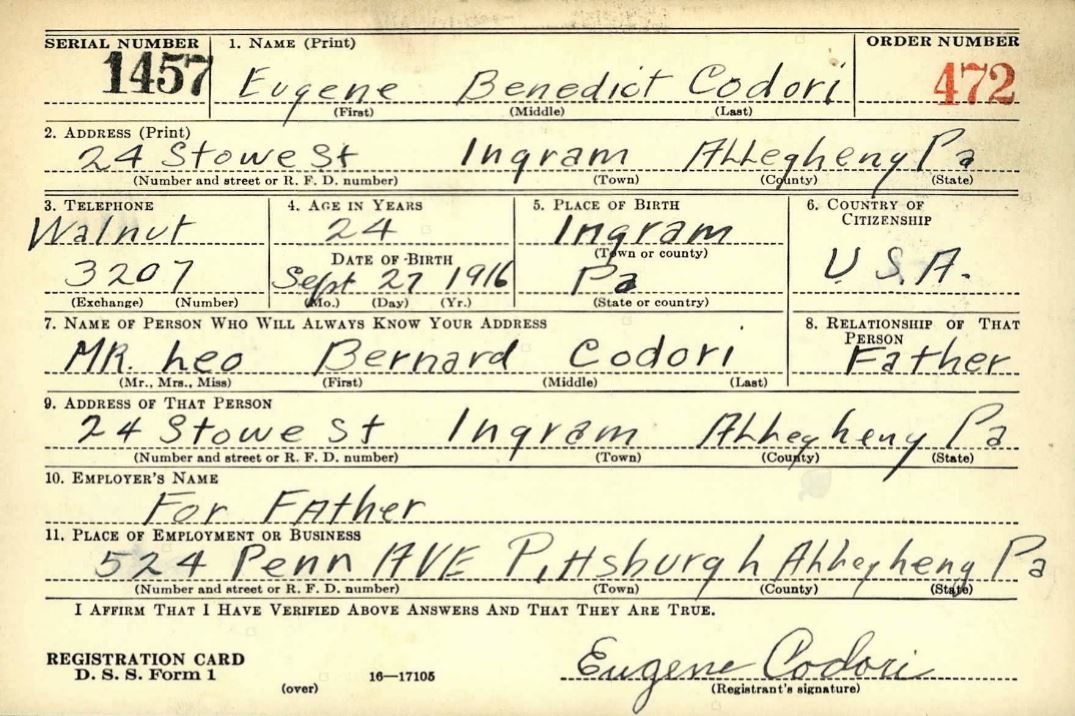 SERIAL NUMBER 1. NAME (Print) ORDER NUMBER
1457 Eugene Benedict Codori 472
(First) (Middle) (Last)
2. ADDRESS (Print)
24 Stowe St Ingram Allegheny Pa
(Number and street or R. F. D. number) (Town) (County) (State)
3. TELEPHONE 4. AGE IN YEARS 5. PLACE OF BIRTH 6. COUNTRY OF CITIZENSHIP
Walnut 24 Ingram
DATE OF BIRTH (Town or county) U.S.A.
3207 Sept 27 1916 Pa
(Exchange) (Number) (Mo.) (Day) (Yr.) (State or country)
7. NAME OF PERSON WHO WILL ALWAYS KNOW YOUR ADDRESS 8. RELATIONSHIP OF THAT PERSON
MR. Leo Bernard Codori Father
(Mr., Mrs., Miss) (First) (Middle) (Last)
9. ADDRESS OF THAT PERSON
24 Stowe St Ingram Allegheny Pa
(Number and street or R. F. D. number) (Town) (County) (State)
10. EMPLOYER'S NAME
For FAther
11. PLACE OF EMPLOYMENT OR BUSINESS
524 Penn AVE Pittsburgh Allegheny Pa
(Number and street or R. F. D. number) (Town) (County) (State)
I AFFIRM THAT I HAVE VERIFIED ABOVE ANSWERS AND THAT THEY ARE TRUE.
REGISTRATION CARD
D. S. S. Form 1 16—17105 Eugene Codori
(over) (Registrant's signature)